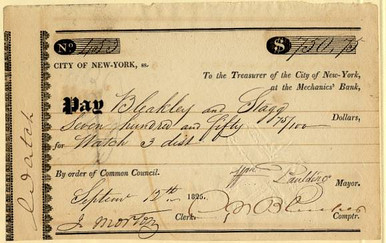 No 133 $ 750.75
CITY OF NEW-YORK, ss.
To the Treasurer of the City of New-York,
at the Mechanics' Bank,
Pay Bleakley and Stagg
Seven hundred and fifty 75/100 Dollars,
for Watch 3 dist
By order of Common Council.
Wm Paulding Mayor.
Septem 12th 1825.
J. Morton Clerk. Comptr.
Watch